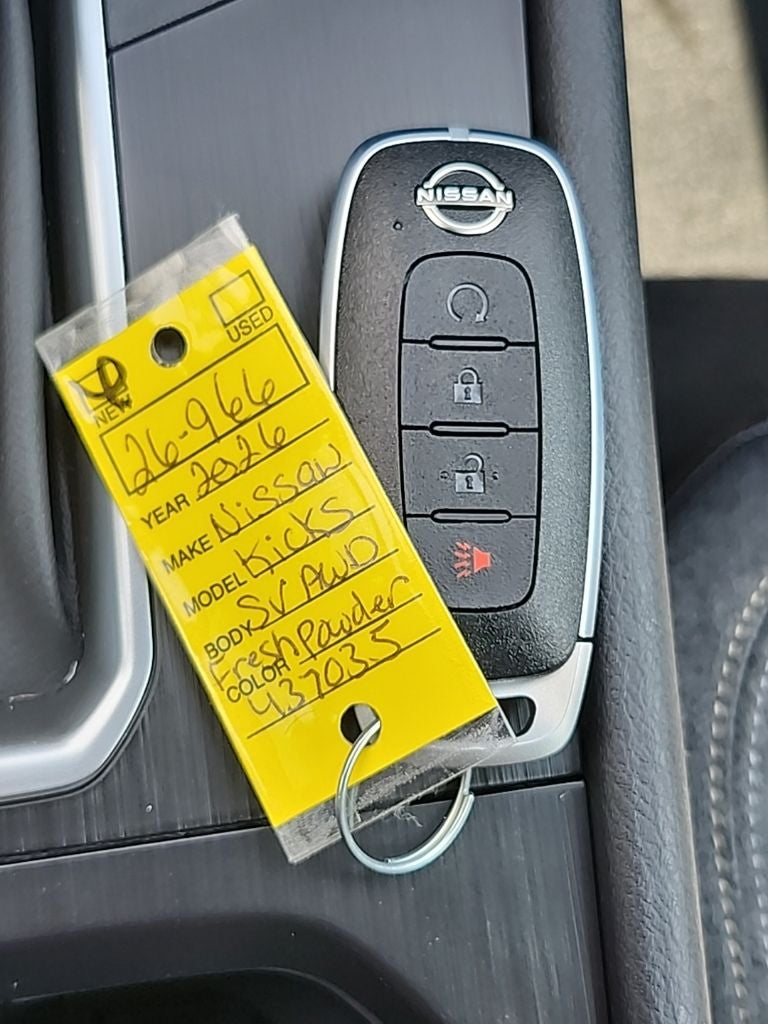 NISSAN
USED
NEW
26-966
YEAR 2026
MAKE Nissan
MODEL Kicks
BODY SV AWD
COLOR Fresh Powder
437035